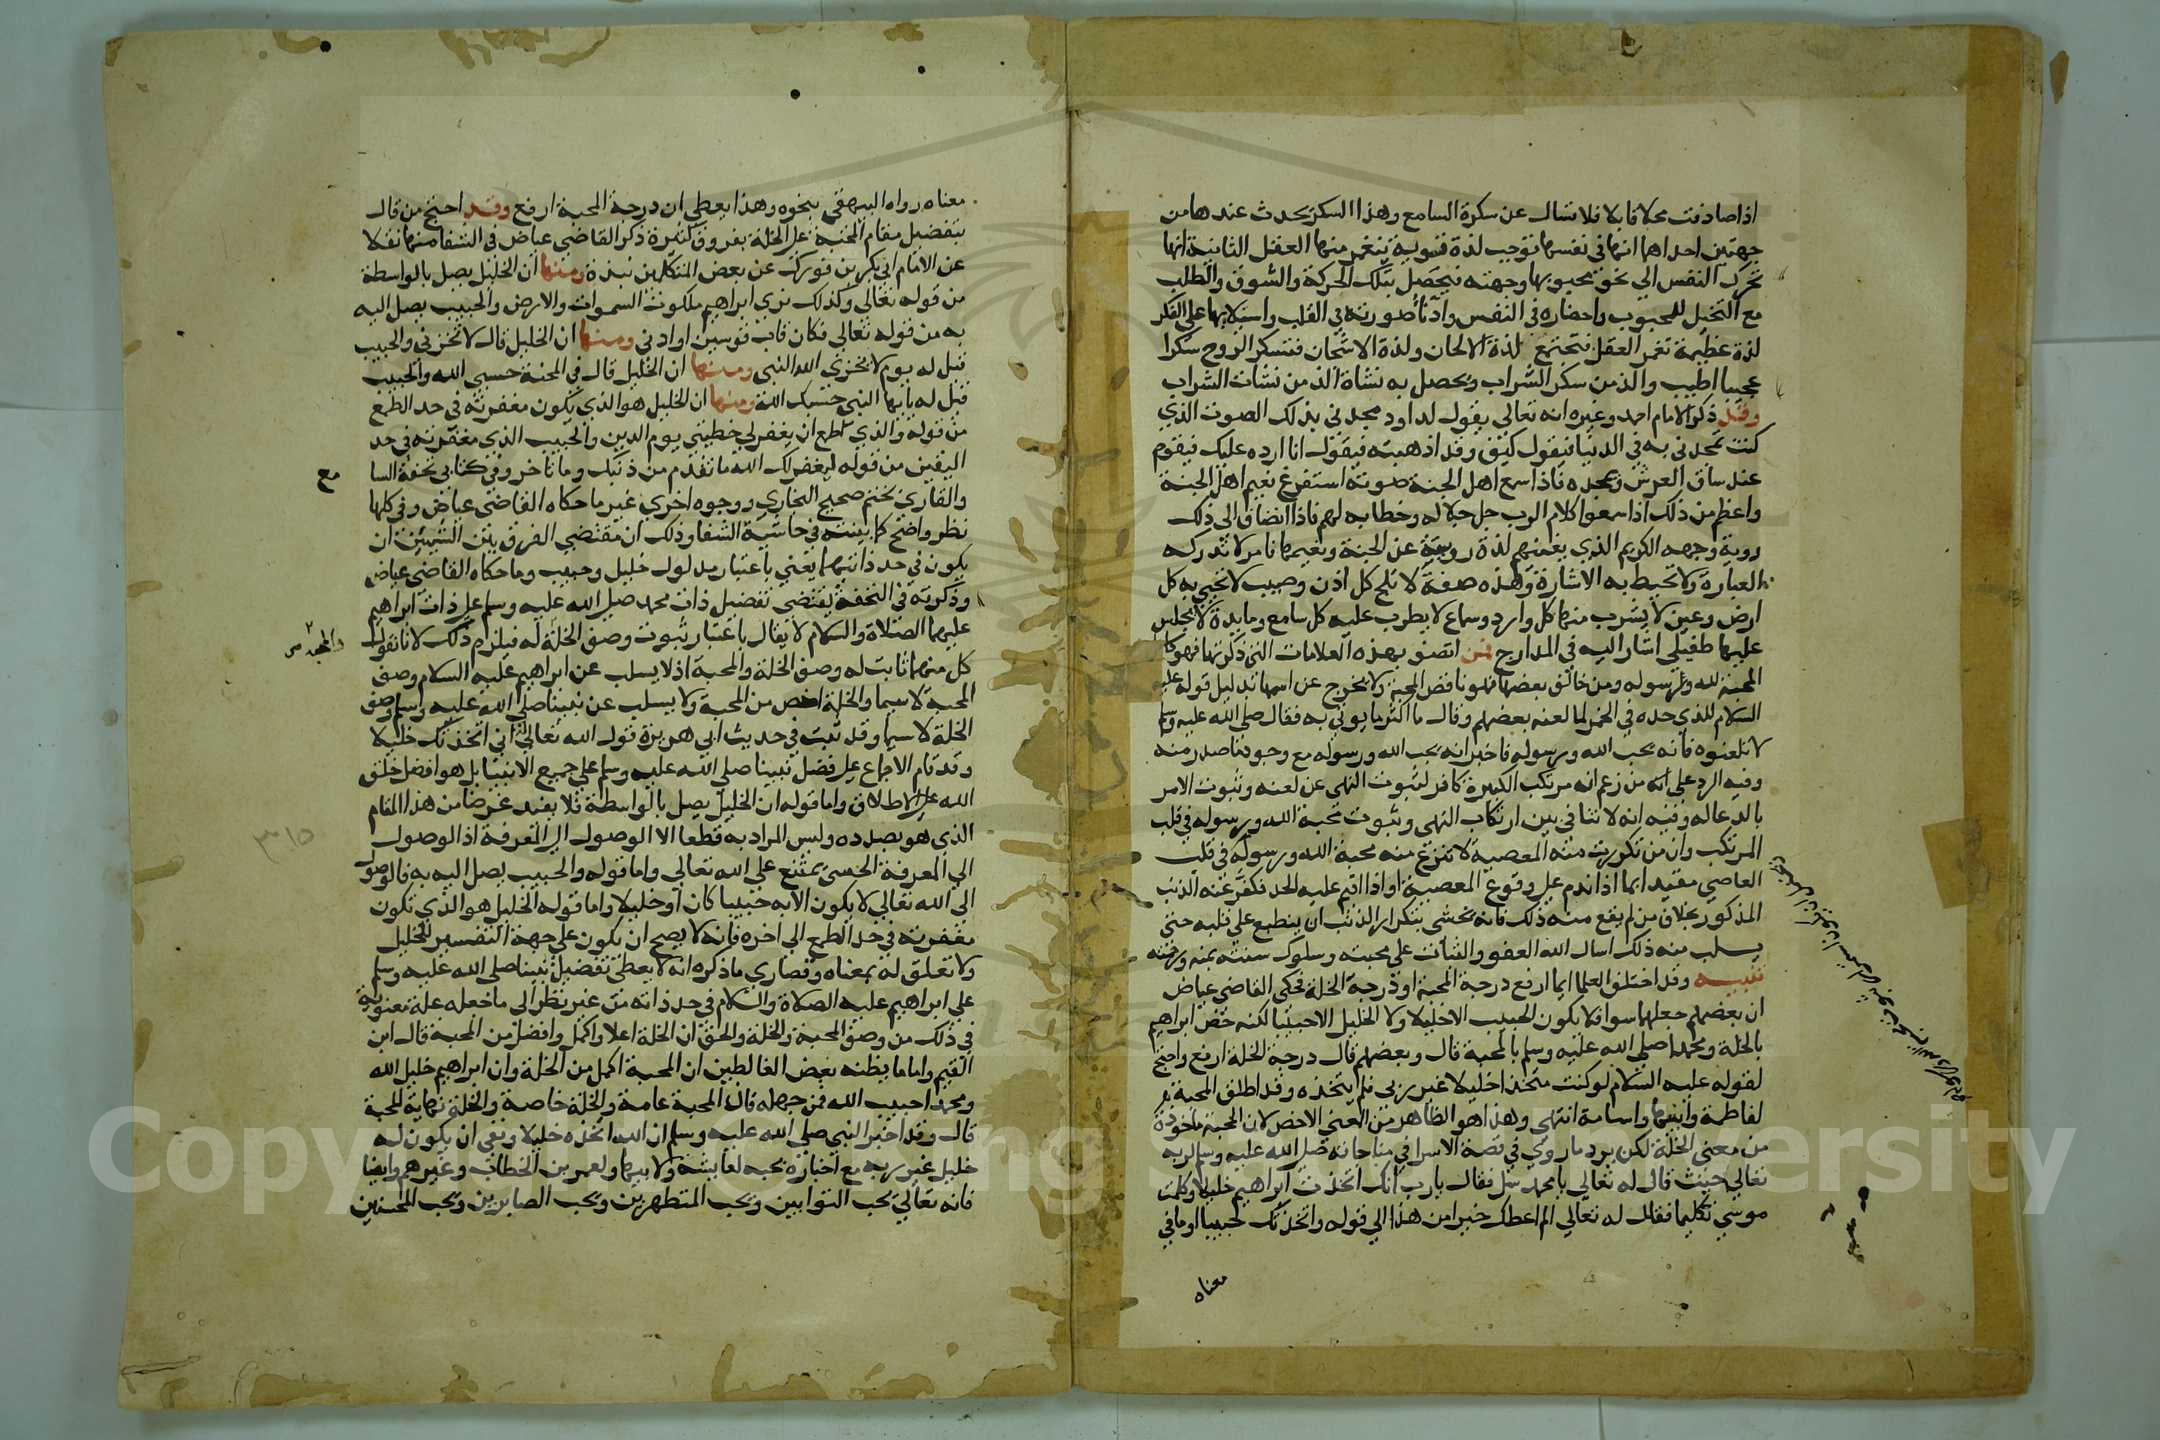 اذا صادفت محلا قابلا فلا تسال عن سكرة السامع وهذا السكر يحدث عندها من
جهتين احداهما انها في نفسها توجب لذة قوية ينغمر منها العقل الثانية انها
تحرك النفس الى نحو محبوبها وجهته فيحصل بتلك الحركة والشوق والطلب
مع التخيل للمحبوب واحضاره في النفس وادنا صورته في القلب واستيلايها على الفكر
لذة عظيمة تغمر العقل فتجتمع لذة الالحان ولذة الاشجان فتسكر الروح سكرا
عجيبا اطيب والذ من سكر الشراب وتحصل به نشاة الذ من نشات الشراب
وقد ذكر الامام احمد وغيره انه تعالى يقول لداود مجدني بذلك الصوت الذي
كنت تمجدني به في الدنيا فيقول كيف وقد اذهبته فيقول انا ارده عليك فيقوم
عند ساق العرش ويمجده فاذا سمع اهل الجنة صوته استفرغ نعيم اهل الجنة
واعظم من ذلك اذا سمعوا كلام الرب جل جلاله وخطابه لهم فاذا انضاف الى ذلك
روية وجهه الكريم الذي يغنيهم لذة رويته عن الجنة ونعيمها فامر لا تدركه
العبارة ولا تحيط به الاشارة وهذه صفة لا تلج كل اذن وصيب لا تحيى به كل
ارض وعين لا يشرب منها كل وارد وسماع لا يطرب عليه كل سامع ومايدة لا يجلس
عليها طفيلي اشار اليه في المدارج فمن اتصف بهذه العلامات التي ذكرتها فهو كامل
المحبة لله ولرسوله ومن خالف بعضها فهو ناقص المحبة ولا يخرج عن اسمها بدليل قوله عليه
السلام للذي حده في الخمر لما لعنه بعضهم وقال ما اكثر ما يوتى به فقال صلى الله عليه وسلم
لا تلعنوه فانه يحب الله ورسوله فاخبر انه يحب الله ورسوله مع وجود ما صدر منه
وفيه الرد على من زعم ان مرتكب الكبيرة كافر لثبوت النهى عن لعنه وثبوت الامر
بالدعا له وفيه انه لا تنافي بين ارتكاب النهى وثبوت محبة الله ورسوله في قلب
المرتكب وان من تكررت منه المعصية لا تنزع منه محبة الله ورسوله في قلب
العاصي مقيد ايما اذا ندم على وقوع المعصية او اذا اقيم عليه الحد فكفر عنه الذنب
المذكور بخلاف من لم يقع منه ذلك فانه يخشى بتكرار الذنب ان ينطبع على قلبه حتى
يسلب منه ذلك اسال الله العفو والثبات على محبته وسلوك سنته بمنه ورحمته
تنبيه وقد اختلف العلما ايما ارفع درجة المحبة او درجة الخلة فحكى القاضي عياض
ان بعضهم جعلهما سوا فلا يكون الحبيب الا خليلا ولا الخليل الا حبيبا لكنه خص ابراهيم
بالخلة ومحمدا صلى الله عليه وسلم بالمحبة قال وبعضهم قال درجة الخلة ارفع واحتج
لقوله عليه السلام لو كنت متخذا خليلا غير ربي فلم يتخذه وقد اطلق المحبة
لفاطمة وابنيها واسامة انتهى وهذا هو الظاهر من المعنى الاخص لان المحبة ماخوذة
من معنى الخلة لكن يرد ما روي في قصة الاسرا في مناجاته صلى الله عليه وسلم لربه
تعالى حيث قال له تعالى يا محمد سل فقال يا رب انك اتخذت ابراهيم خليلا وكلمت
موسى تكليما فقال له تعالى الم اعطك خيرا من هذا الى قوله واتخذتك حبيبا او ما في
معناه
معناه رواه البيهقي بنحوه وهذا يعطي ان درجة المحبة ارفع وقد احتج من قال
بتفضيل مقام المحبة على الخلة بفروق كثيرة ذكر القاضي عياض في الشفا منها نقلا
عن الامام ابي بكر بن فورك عن بعض المتكلمين نبذة ومنها ان الخليل يصل بالواسطة
من قوله تعالى وكذلك نري ابراهيم ملكوت السموات والارض والحبيب يصل اليه
به من قوله تعالى فكان قاب قوسين او ادنى ومنها ان الخليل قال لا تخزني والحبيب
قيل له يوم لا يخزي الله النبي ومنها ان الخليل قال في المحنة حسبي الله والحبيب
قيل له يايها النبي حسبك الله ومنها ان الخليل هو الذي يكون مغفرته في حد الطمع
من قوله والذي اطمع ان يغفر لي خطيئتي يوم الدين والحبيب الذي مغفرته في حد
اليقين من قوله ليغفر لك الله ما تقدم من ذنبك وما تاخر وفي كتابي تحفة السا
مع
والقاري بختم صحيح البخاري وجوه اخرى غير ما حكاه القاضي عياض وفي كلها
نظر واضح كما بينته في حاشية الشفا وذلك ان مقتضى الفرق بين الشيئين ان
يكون في حد ذاتيهما يعني باعتبار مدلول خليل وحبيب وما حكاه القاضي عياض
وذكرته في التحفة يقتضي تفضيل ذات محمد صلى الله عليه وسلم على ذات ابراهيم
عليهما الصلاة والسلام لا يقال باعتبار ثبوت وصف الخلة له فيلزم ذلك لانا نقول
والمحبة
كل منهما ثابت له وصف الخلة والمحبة اذ لا يسلب عن ابراهيم عليه السلام وصف
المحبة لا سيما والخلة اخص من المحبة ولا يسلب عن نبينا صلى الله عليه وسلم وصف
الخلة لا سيما وقد ثبت في حديث ابي هريرة قول الله تعالى له اني اتخذتك خليلا
وقد قام الاجماع على فضل نبينا صلى الله عليه وسلم على جميع الانبيا بل هو افضل خلق
الله على الاطلاق واما قوله ان الخليل يصل بالواسطة فلا يفيد غرضا من هذا المقام
الذي هو بصدده وليس المراد به قطعا الا الوصول الى المعرفة اذ الوصول
٣١٥
الى المعرفة الحسي يمتنع على الله تعالى واما قوله والحبيب يصل اليه به فالوصول
الى الله تعالى لا يكون الا به حبيبا كان او خليلا واما قوله الخليل هو الذي تكون
مغفرته في حد الطمع الى اخره فانه لا يصح ان يكون على جهة التفسير للخليل
ولا تعلق له بمعناه وقصارى ما ذكره انه لا يعطي تفضيل نبينا صلى الله عليه وسلم
على ابراهيم عليه الصلاة والسلام في حد ذاته من غير نظر الى ما جعله علة معنوية
في ذلك من وصف المحبة والخلة والحق ان الخلة اعلا واكمل وافضل من المحبة قال ابن
القيم واما ما يظنه بعض الغالطين ان المحبة اكمل من الخلة وان ابراهيم خليل الله
ومحمدا حبيب الله فمن جهله فان المحبة عامة والخلة خاصة والخلة نهاية المحبة
قال وقد اخبر النبي صلى الله عليه وسلم ان الله اتخذه خليلا ونفى ان يكون له
خليل غير ربه مع اخباره بحبه لعايشة ولابيها ولعمر بن الخطاب وغيرهم وايضا
فانه تعالى يحب التوابين ويحب المتطهرين ويحب الصابرين ويحب المحسنين
Copyright © King Saud University